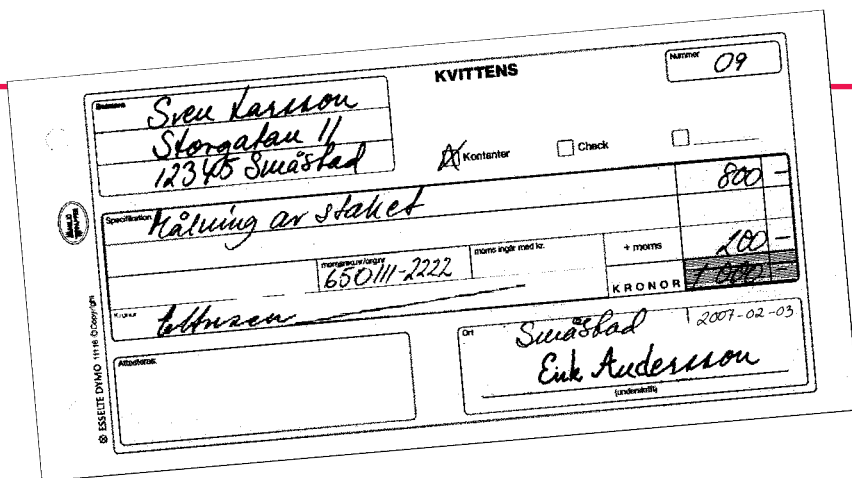 KVITTENS
Nummer 09
Sven Larsson
Storgatan 11
12345 Småstad
Kontanter
Check
Specifikation
Målning av staket
800 -
momsreg.nr/org.nr
650111-2222
moms ingår med kr.
+ moms
200 -
KRONOR
1 000 -
Kronor
Ettusen
Attesteras:
Ort
Småstad
2007-02-03
Erik Andersson
(underskrift)
ESSELTE DYMO 11116 © Copyright